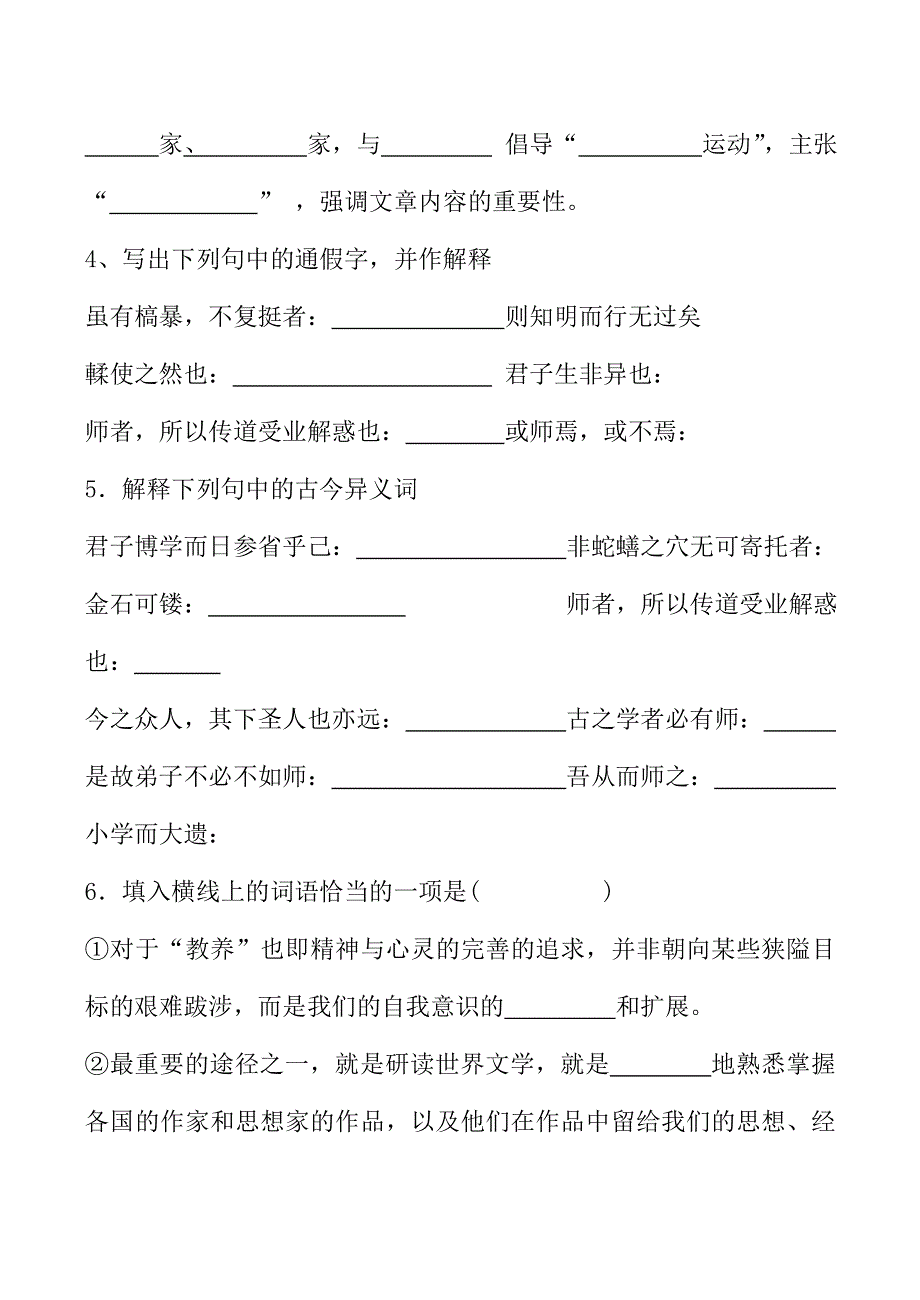 ______家、__________家，与_________ 倡导“__________运动”，主张
“____________” ，强调文章内容的重要性。
4、写出下列句中的通假字，并作解释
虽有槁暴，不复挺者：______________则知明而行无过矣
輮使之然也：_____________________ 君子生非异也：
师者，所以传道受业解惑也：________或师焉，或不焉：
5．解释下列句中的古今异义词
君子博学而日参省乎己：_________________非蛇蟮之穴无可寄托者：
金石可镂：________________ 师者，所以传道受业解惑
也：_______
今之众人，其下圣人也亦远：_____________古之学者必有师：______
是故弟子不必不如师：___________________吾从而师之：__________
小学而大遗：
6．填入横线上的词语恰当的一项是( )
①对于“教养”也即精神与心灵的完善的追求，并非朝向某些狭隘目
标的艰难跋涉，而是我们的自我意识的_________和扩展。
②最重要的途径之一，就是研读世界文学，就是________地熟悉掌握
各国的作家和思想家的作品，以及他们在作品中留给我们的思想、经